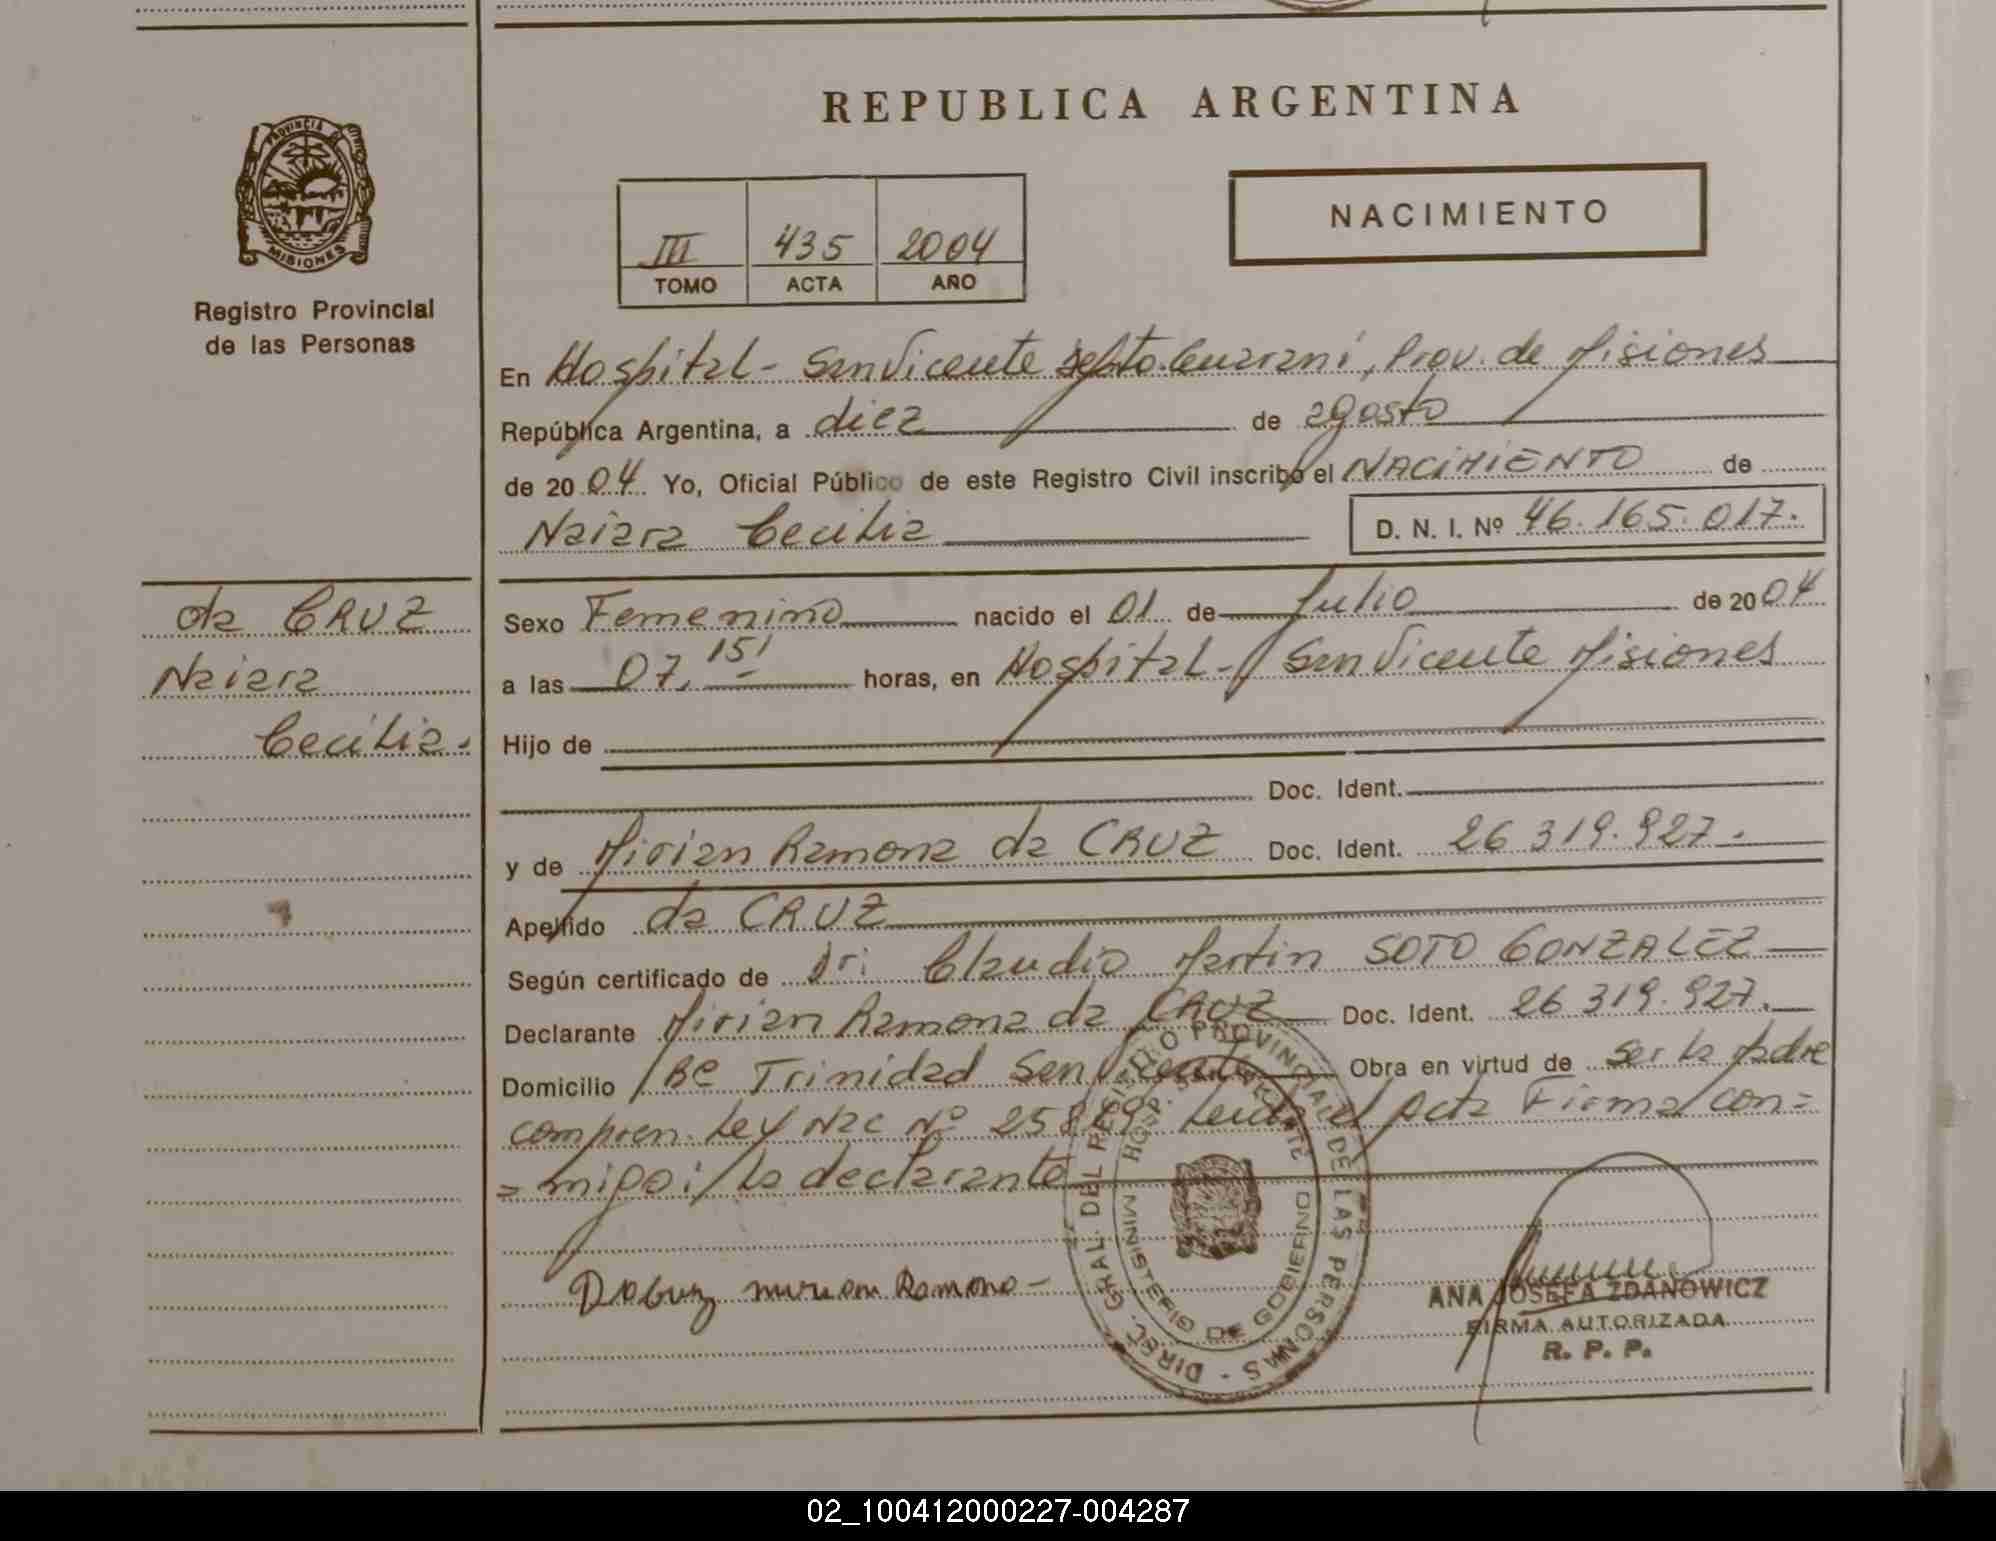 REPUBLICA ARGENTINA
PROVINCIA DE MISIONES
Registro Provincial
de las Personas
NACIMIENTO
III 435 2004
TOMO ACTA AÑO
En Hospital - San Vicente Depto. Guaraní, Prov. de Misiones
República Argentina, a diez de agosto
de 2004 Yo, Oficial Público de este Registro Civil inscribo el NACIMIENTO de
Naiara Cecilia D. N. I. Nº 46.165.017.
da CRUZ
Naiara
Cecilia.
Sexo Femenino nacido el 01 de Julio de 2004
a las 07,15' horas, en Hospital - San Vicente Misiones
Hijo de
Doc. Ident.
y de Mirian Ramona da CRUZ Doc. Ident. 26 319.927.
Apellido da CRUZ
Según certificado de Dr: Claudio Martin SOTO GONZALEZ
Declarante Mirian Ramona da CRUZ Doc. Ident. 26 319.927.
Domicilio Bº Trinidad San Vicente Obra en virtud de ser la Madre
compren. Ley Nac Nº Leida el Acta Firma con=
=migo: la declarante
Miriam Ramona -
DIREC. GRAL. DEL REGISTRO PROVINCIAL DE LAS PERSONAS -
HOSP. SAN VICENTE
MINISTERIO DE GOBIERNO
ANA JOSEFA ZDANOWICZ
FIRMA AUTORIZADA
R. P. P.
02_100412000227-004287